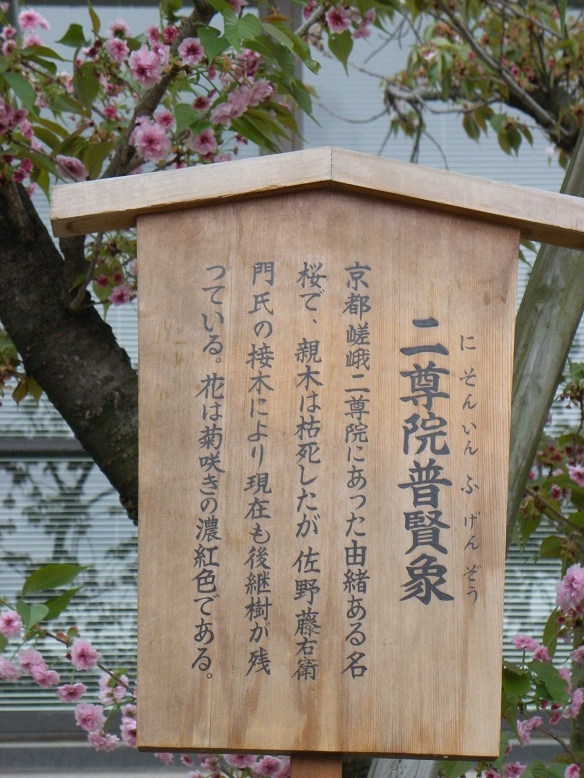 にそんいんふげんぞう
二尊院普賢象
京都嵯峨二尊院にあった由緒ある名
桜で、親木は枯死したが 佐野藤右衛
門氏の接木により現在も後継樹が残
っている。花は菊咲きの濃紅色である。